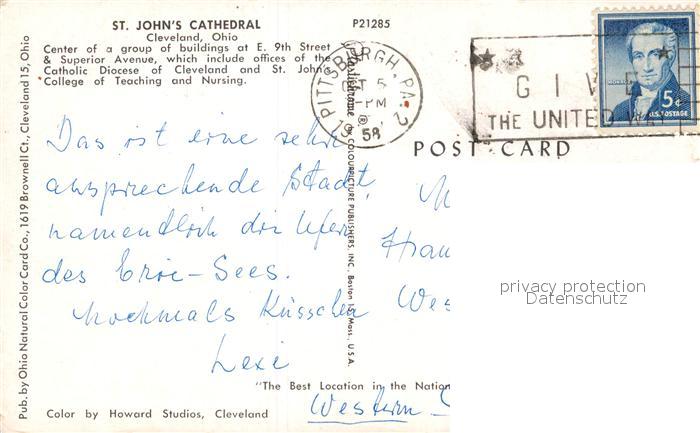 ST. JOHN'S CATHEDRAL
Cleveland, Ohio
Center of a group of buildings at E. 9th Street
& Superior Avenue, which include offices of the
Catholic Diocese of Cleveland and St. John's
College of Teaching and Nursing.
P21285
PITTSBURGH, PA. 2
PM
1958
GIVE
THE UNITED WAY
MONROE
5¢
U.S. POSTAGE
POST CARD
Das ist eine sehr
ansprechende Stadt,
namentlich die Ufer
des Erie-Sees.
Nochmals Küsschen
Lexi
Frau
Wes
privacy protection
Datenschutz
"The Best Location in the Nation
Western
Color by Howard Studios, Cleveland
Pub. by Ohio Natural Color Card Co., 1619 Brownell Ct., Cleveland 15, Ohio
Plastichrome ® by COLOURPICTURE PUBLISHERS, INC., Boston 15, Mass., U.S.A.